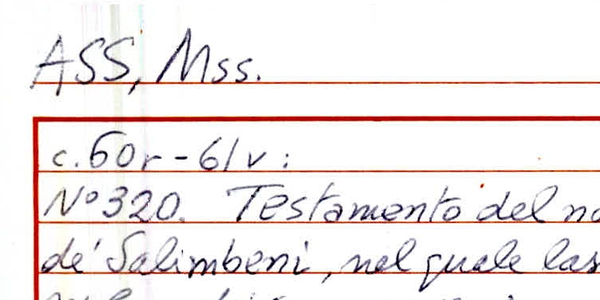 ASS, Mss.
c. 60r-61v:
N° 320. Testamento del no
de' Salimbeni, nel quale las